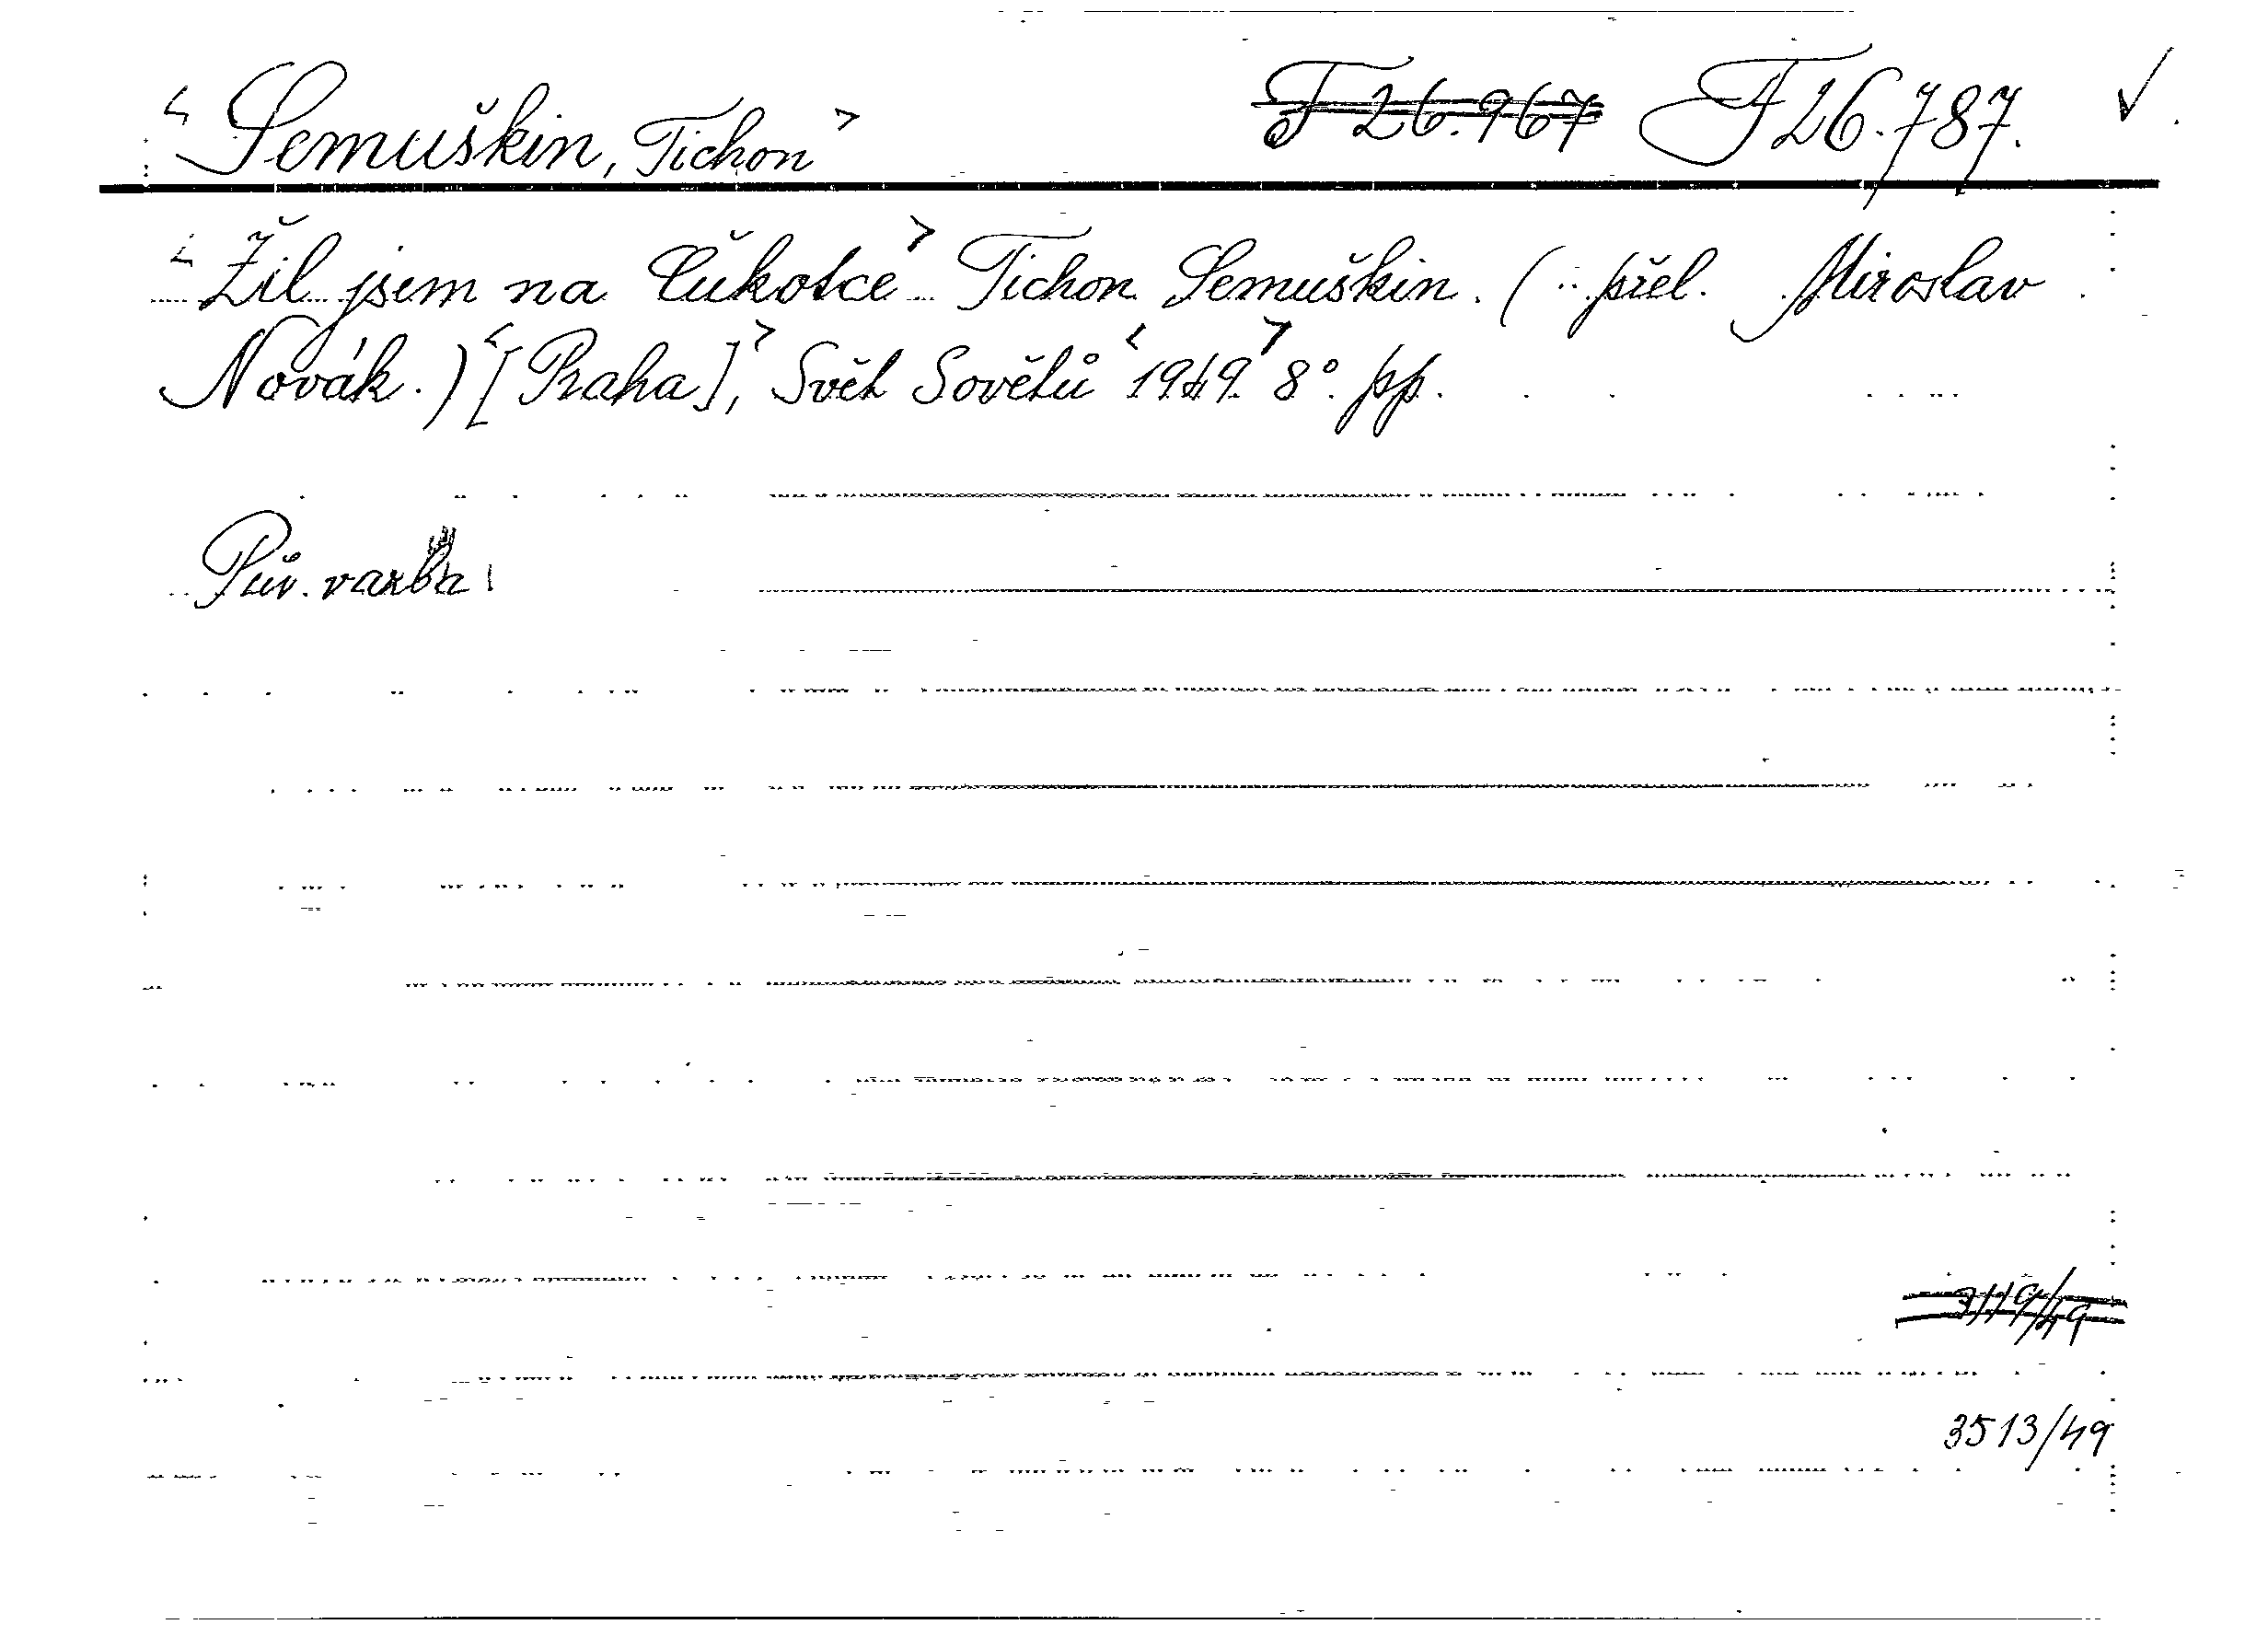 <Semuškin, Tichon> F 26.967 F 26.787. ✓
<Žil jsem na Čukotce> Tichon Semuškin. (.. přel. Miroslav
Novák.) <[Praha],> Svět Sovětů <1949.> 8°. pp.
Pův. vazba
3119/49
3513/49